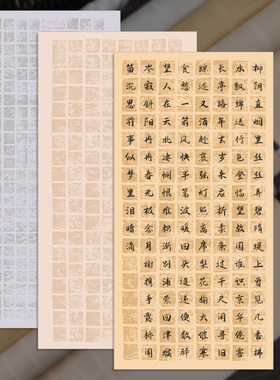 柳阴直烟里丝丝弄碧隋堤上曾见几番拂
水飘绵送行色登临望故国谁识京华倦客
长亭路年去岁来应折柔条过千尺闲寻旧
踪迹又酒趁哀弦灯照离席梨花榆火催寒
食愁一箭风快半篙波暖回头迢递便数驿
望人在天北凄恻恨堆积渐别浦萦回津堠
岑寂斜阳冉冉春无极念月榭携手露桥闻
笛沉思前事似梦里泪暗滴